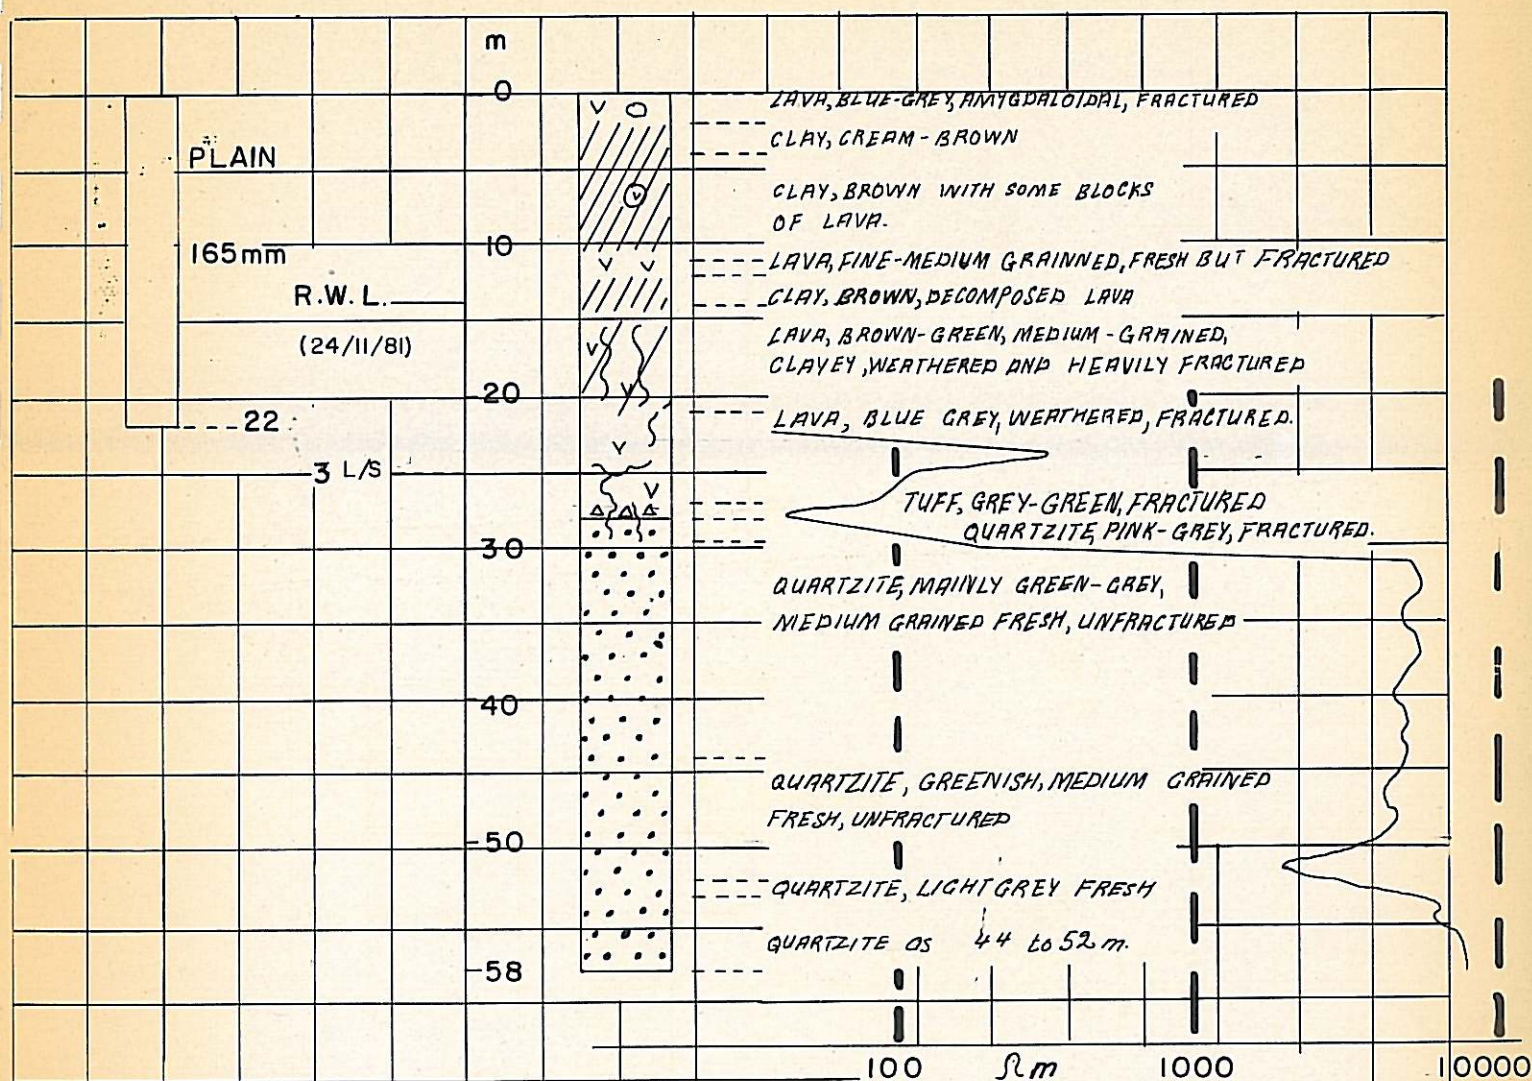 m
0
LAVA, BLUE-GREY, AMYGDALOIDAL, FRACTURED
CLAY, CREAM-BROWN
PLAIN
CLAY, BROWN WITH SOME BLOCKS
OF LAVA.
10
165mm
LAVA, FINE-MEDIUM GRAINNED, FRESH BUT FRACTURED
R.W.L.
CLAY, BROWN, DECOMPOSED LAVA
(24/11/81)
LAVA, BROWN-GREEN, MEDIUM-GRAINED,
CLAYEY, WEATHERED AND HEAVILY FRACTURED
20
22
LAVA, BLUE GREY, WEATHERED, FRACTURED.
3 L/S
TUFF, GREY-GREEN, FRACTURED
QUARTZITE, PINK-GREY, FRACTURED.
30
QUARTZITE, MAINLY GREEN-GREY,
MEDIUM GRAINED FRESH, UNFRACTURED
40
QUARTZITE, GREENISH, MEDIUM GRAINED
FRESH, UNFRACTURED
50
QUARTZITE, LIGHT GREY FRESH
QUARTZITE as 44 to 52 m.
58
100 Ωm 1000 10000